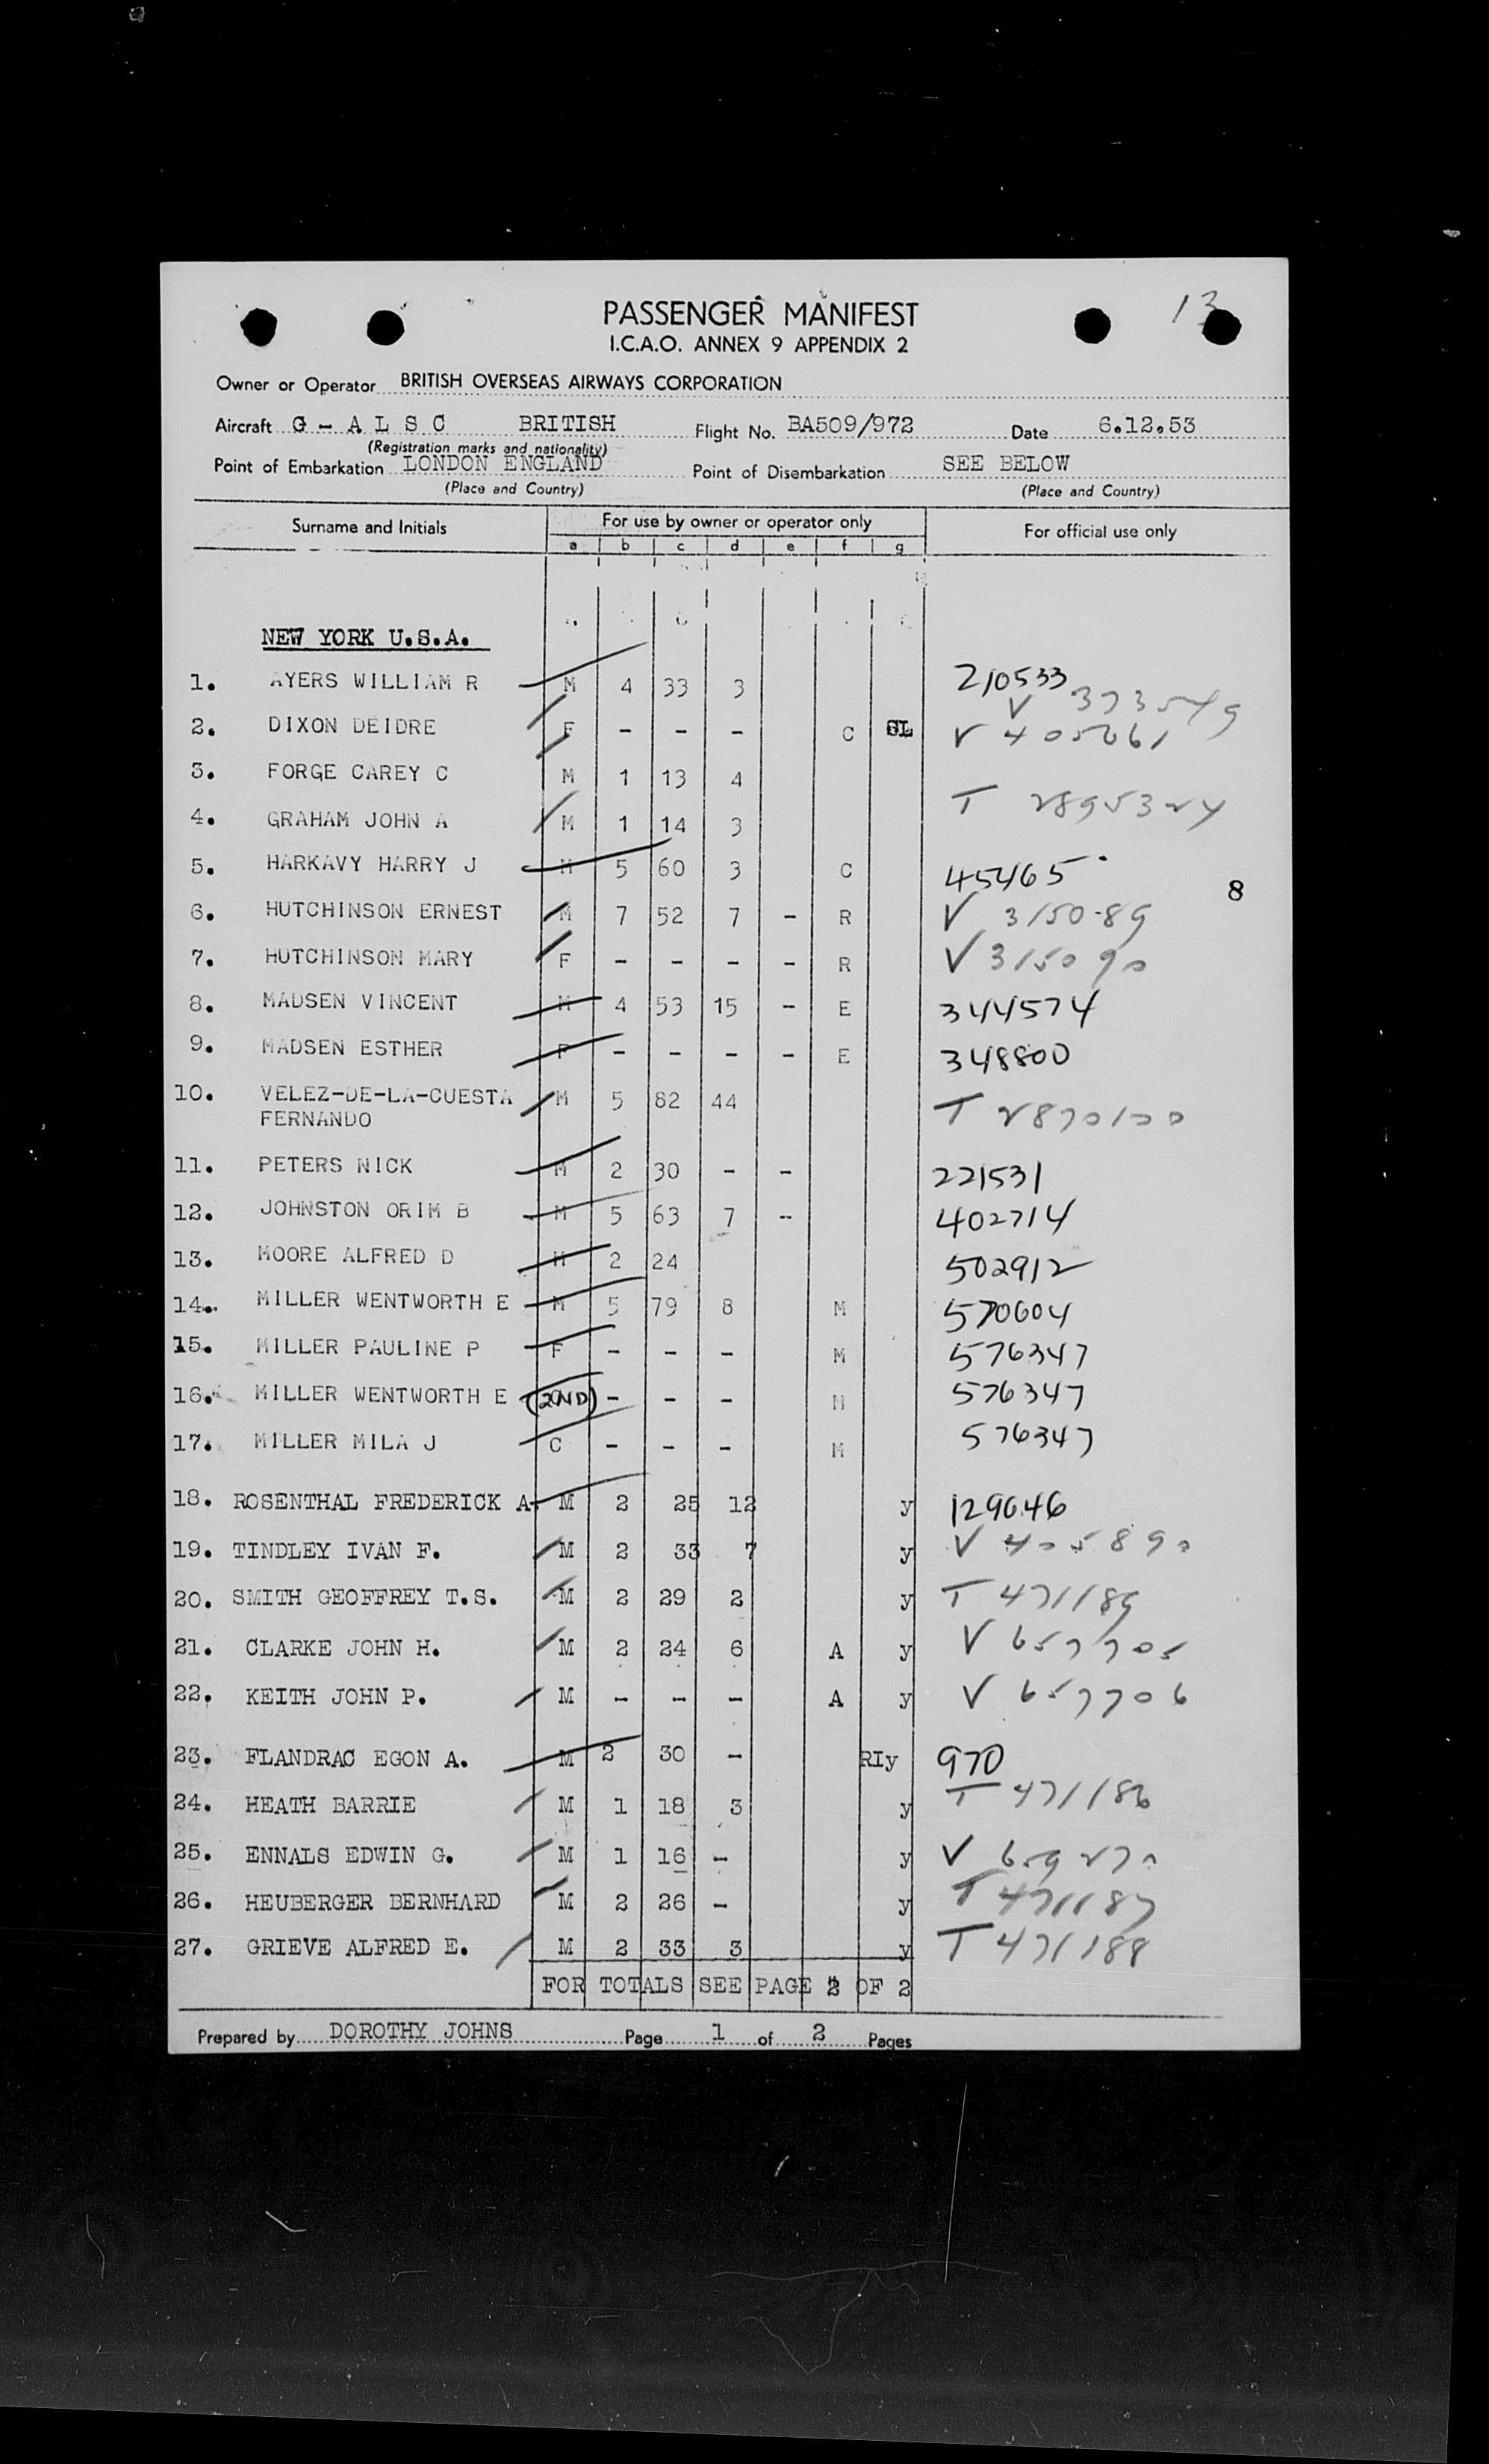 13
PASSENGER MANIFEST
I.C.A.O. ANNEX 9 APPENDIX 2
Owner or Operator BRITISH OVERSEAS AIRWAYS CORPORATION
Aircraft G - A L S C BRITISH Flight No. BA509/972 Date 6.12.53
(Registration marks and nationality)
Point of Embarkation LONDON ENGLAND Point of Disembarkation SEE BELOW
(Place and Country) (Place and Country)
Surname and Initials For use by owner or operator only For official use only
a b c d e f g
NEW YORK U.S.A.
1. AYERS WILLIAM R M 4 33 3 210533
V 373549
2. DIXON DEIDRE F - - - C V 405261
3. FORGE CAREY C M 1 13 4
4. GRAHAM JOHN A M 1 14 3 T 2895324
5. HARKAVY HARRY J M 5 60 3 C 45465
8
6. HUTCHINSON ERNEST M 7 52 7 - R V 315089
7. HUTCHINSON MARY F - - - - R V 315090
8. MADSEN VINCENT M 4 53 15 - E 344574
9. MADSEN ESTHER F - - - - E 348800
10. VELEZ-DE-LA-CUESTA M 5 82 44 T 2870100
FERNANDO
11. PETERS NICK M 2 30 - - 221531
12. JOHNSTON ORIM B M 5 63 7 - 402714
13. MOORE ALFRED D M 2 24 502912
14. MILLER WENTWORTH E M 5 79 8 M 570604
15. MILLER PAULINE P F - - - M 576347
16. MILLER WENTWORTH E (2ND) - - - M 576347
17. MILLER MILA J C - - - M 576347
18. ROSENTHAL FREDERICK A. M 2 25 12 y 129646
19. TINDLEY IVAN F. M 2 33 7 y V 405890
20. SMITH GEOFFREY T.S. M 2 29 2 y T 471189
21. CLARKE JOHN H. M 2 24 6 A y V 657705
22. KEITH JOHN P. M - - - A y V 657706
23. FLANDRAC EGON A. M 2 30 - RIy 970
24. HEATH BARRIE M 1 18 3 y T 471186
25. ENNALS EDWIN G. M 1 16 - y V 659270
26. HEUBERGER BERNHARD M 2 26 - y T 471187
27. GRIEVE ALFRED E. M 2 33 3 y T 471188
FOR TOTALS SEE PAGE 2 OF 2
Prepared by DOROTHY JOHNS Page 1 of 2 Pages